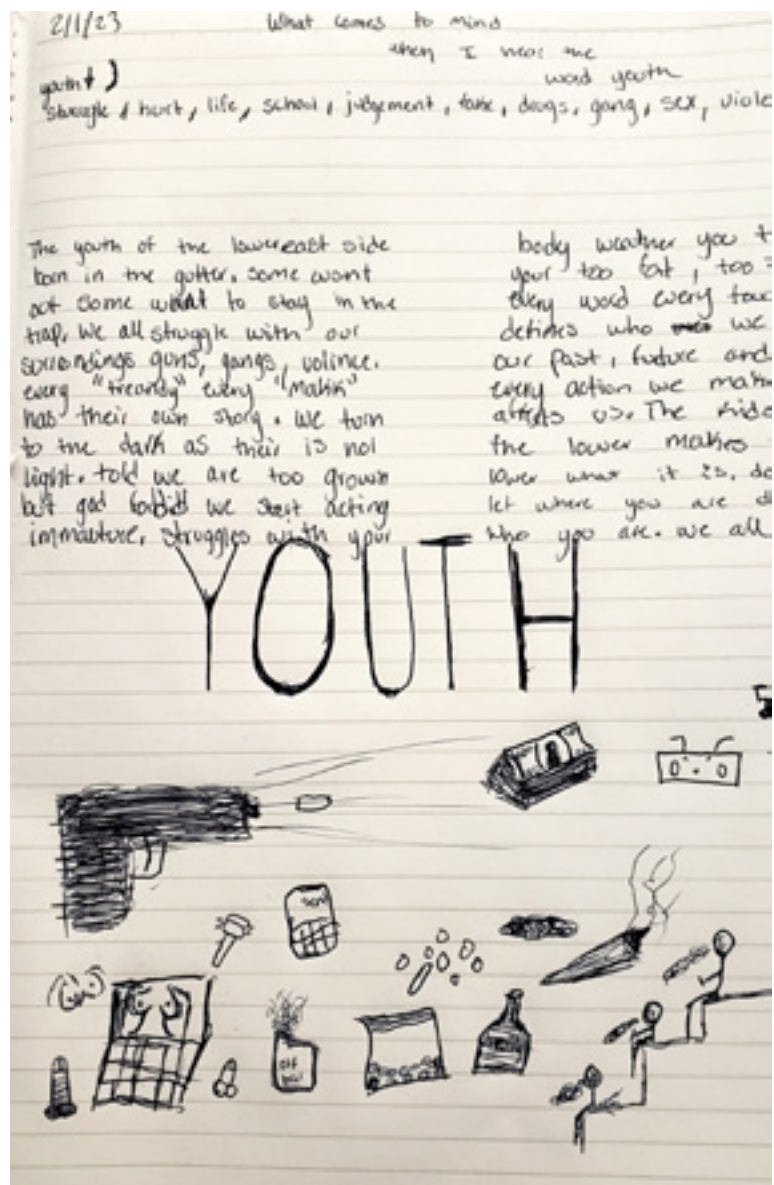 2/1/23
What comes to mind
when I hear the
word youth
youth
struggle, hurt, life, school, judgement, fake, drugs, gang, sex,
The youth of the lowereast side
born in the gutter. some want
out some want to stay in the
trap. we all struggle with our
surrondings guns, gangs, volince.
every "treandy" every "Malik"
has their own story. we turn
to the dark as their is not
light. told we are too grown
but god forbid we start acting
immauture, struggles with your
body weather you
your too fat, too
every word every
defines who we
our past, future and
every action we
affects us. The
the lower makes
lower what it is.
let where you are
who you are. we all
YOUTH